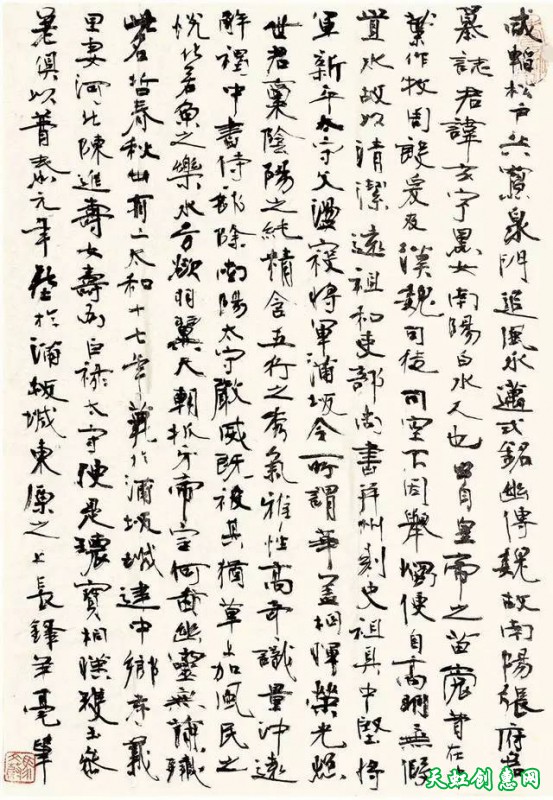 咸韜松户共寂泉門追風永邁式銘幽傳魏故南陽張府君
墓誌君諱玄字黑女南陽白水人也出自皇帝之苗裔昔在中
葉作牧周殷爰及漢魏司徒司空不因舉燭便自高明無假
置水故以清潔遠祖和吏部尚書并州刺史祖具中堅將
軍新平太守父盪寇將軍蒲坂令所謂華蓋相暉榮光照
世君稟陰陽之純精含五行之秀氣雅性高奇識量沖遠
解褐中書侍郎除南陽太守嚴威既被其猶草上加風民之
悅化若魚之樂水方欲羽翼天朝抓牙帝室何啚幽靈無簡殲
此名哲春秋卅有二太和十七年薨於蒲坂城建中鄉孝義
里妻河北陳進壽女壽為巨祿太守便是瓌寶相映瓊玉參
差俱以普泰元年塟於蒲坂城東原之上長鋒羊毫筆
天虹创意网